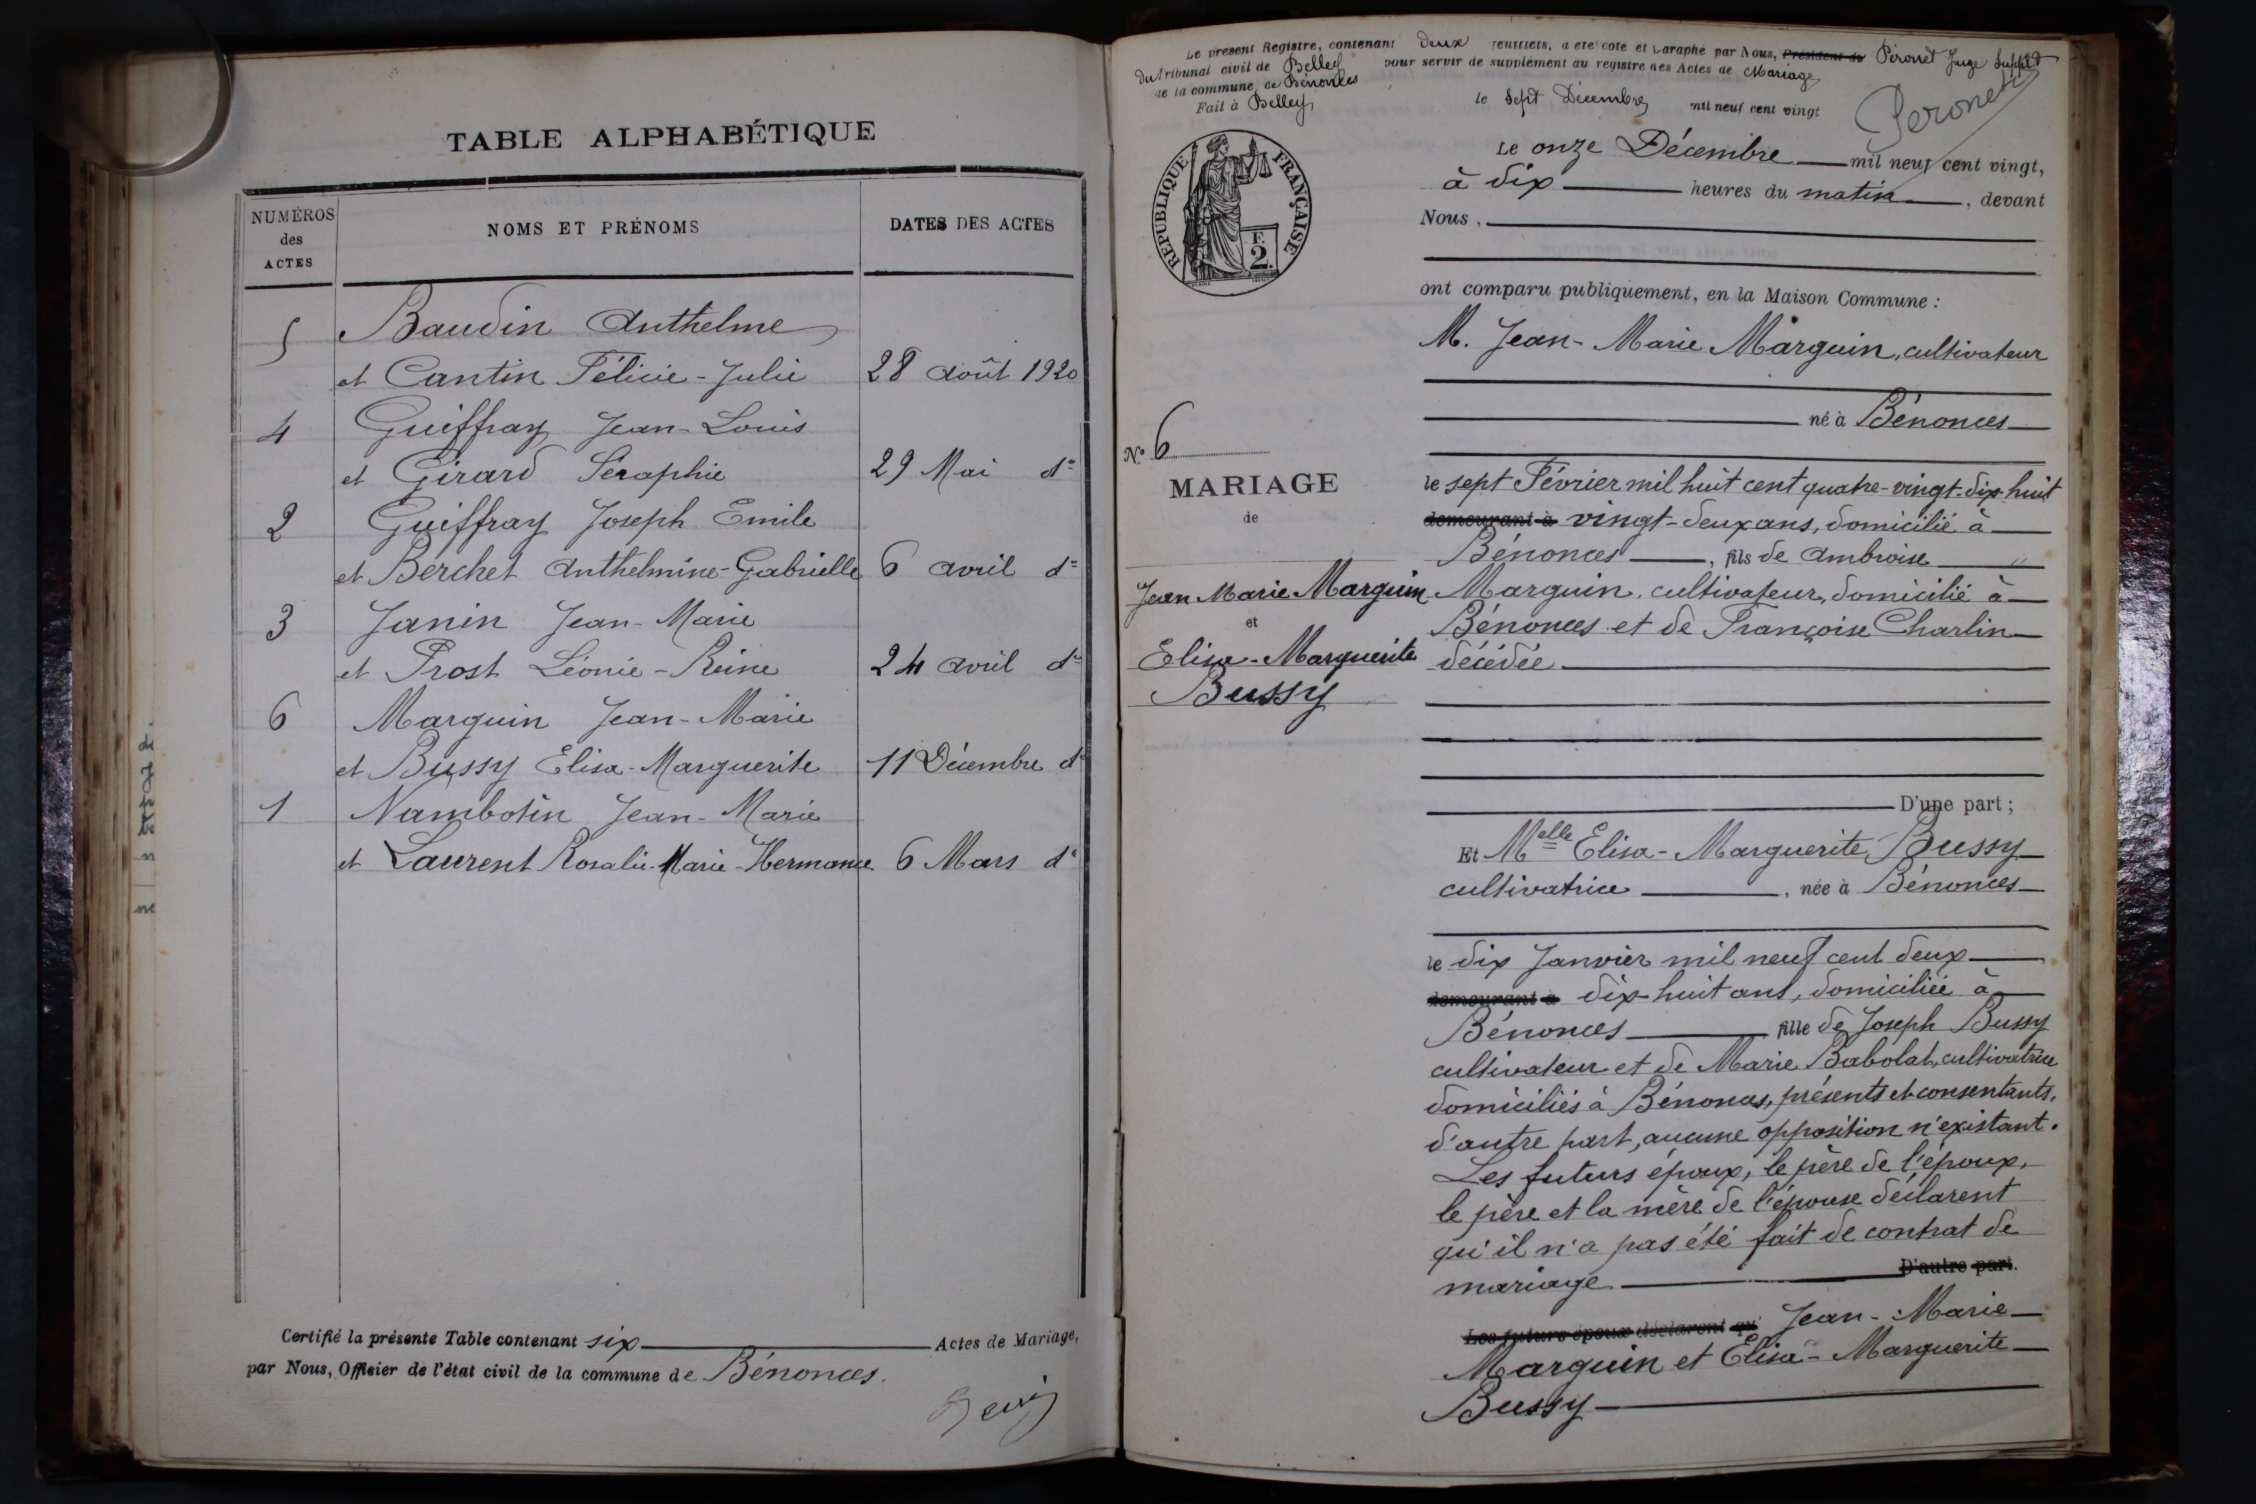 TABLE ALPHABÉTIQUE
NUMÉROS des ACTES
NOMS ET PRÉNOMS
DATES DES ACTES
5 Baudin Anthelme
et Cantin Félicie-Julie 28 Août 1920
4 Guiffray Jean-Louis
et Girard Séraphie 29 Mai do
2 Guiffray Joseph Emile
et Berchet Anthelmine-Gabrielle 6 avril do
3 Janin Jean-Marie
et Prost Léonie-Reine 24 avril do
6 Marguin Jean-Marie
et Bussy Elisa-Marguerite 11 Décembre do
1 Nambotin Jean-Marie
et Laurent Rosalie-Marie-Hermance 6 Mars do
Certifié la présente Table contenant six Actes de Mariage,
par Nous, Officier de l'état civil de la commune de Bénonces.
Le présent Registre, contenant deux feuillets, a été coté et paraphé par Nous, Président du Péronet Juge Suppt
du Tribunal civil de Belley pour servir de supplément au registre des Actes de Mariage
de la commune de Bénonces
Fait à Belley le Sept Décembre mil neuf cent vingt
Peronet
RÉPUBLIQUE FRANÇAISE
F. 2.
Le onze Décembre mil neuf cent vingt,
à dix heures du matin, devant
Nous,
ont comparu publiquement, en la Maison Commune :
M. Jean-Marie Marguin, cultivateur
né à Bénonces
N° 6
MARIAGE
de
Jean Marie Marguin
et
Elisa-Marguerite
Bussy
le sept Février mil huit cent quatre-vingt-dix-huit
demeurant à vingt-deux ans, domicilié à
Bénonces, fils de Ambroise "
Marguin, cultivateur, domicilié à
Bénonces et de Françoise Charlin
décédée
D'une part ;
Et Melle Elisa-Marguerite Bussy
cultivatrice, née à Bénonces
le dix Janvier mil neuf cent deux
demeurant à dix-huit ans, domiciliée à
Bénonces fille de Joseph Bussy
cultivateur et de Marie Babolat, cultivatrice
domiciliés à Bénonces, présents et consentants,
d'autre part, aucune opposition n'existant.
Les futurs époux, le père de l'époux,
le père et la mère de l'épouse déclarent
qu'il n'a pas été fait de contrat de
mariage D'autre part.
Les futurs époux déclarent qu' Jean-Marie
Marguin et Elisa-Marguerite
Bussy